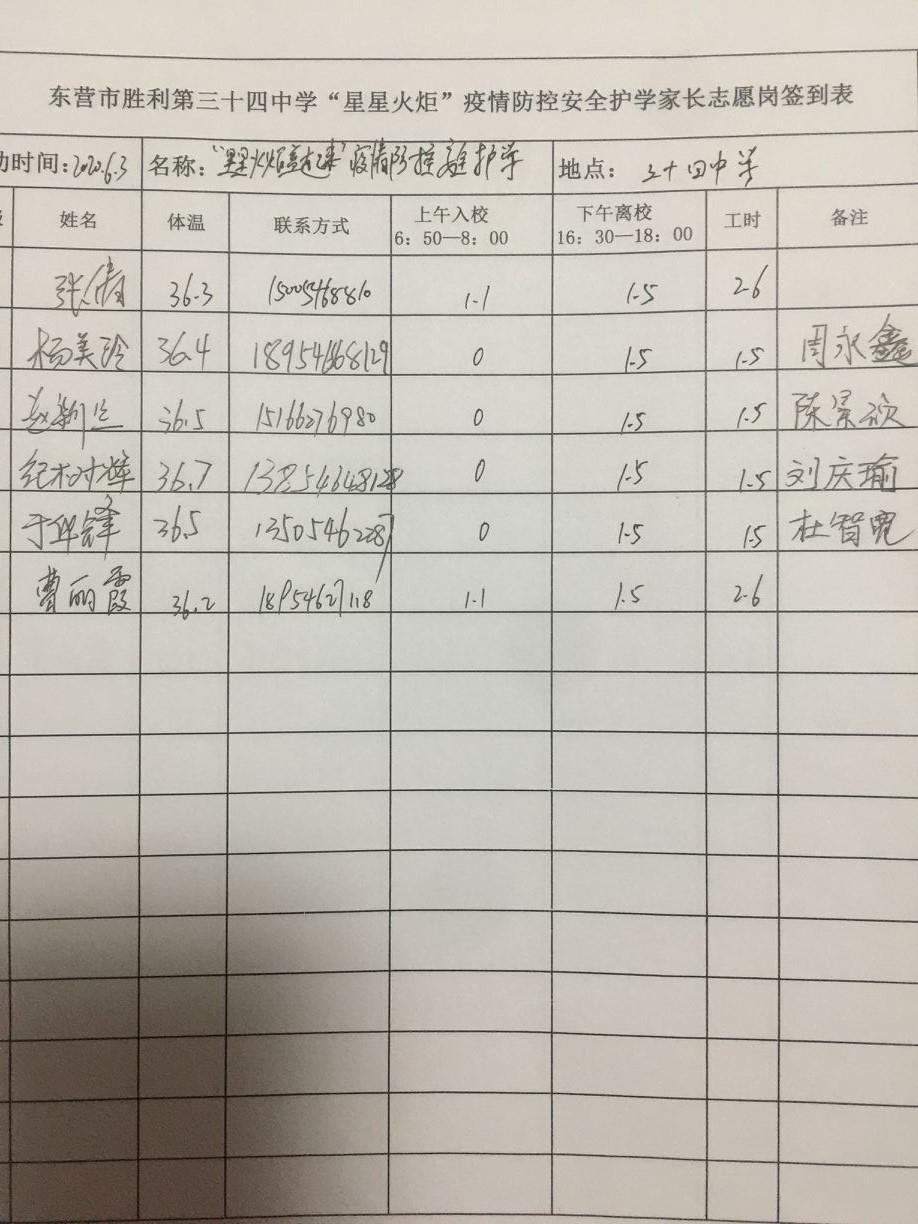 东营市胜利第三十四中学“星星火炬”疫情防控安全护学家长志愿岗签到表
动时间:2020.6.3 名称: 疫情防控 护学 地点: 三十四中学
姓名 体温 联系方式 上午入校 6:50—8:00 下午离校 16:30—18:00 工时 备注
张倩 36.3 15005468810 1.1 1.5 2.6
杨美玲 36.4 18954668129 0 1.5 1.5 周永鑫
36.5 15166276980 0 1.5 1.5 陈景欣
纪木对辉 36.7 13854648128 0 1.5 1.5 刘庆瑜
36.5 13505462287 0 1.5 1.5 杜智冕
曹丽霞 36.2 1.1 1.5 2.6